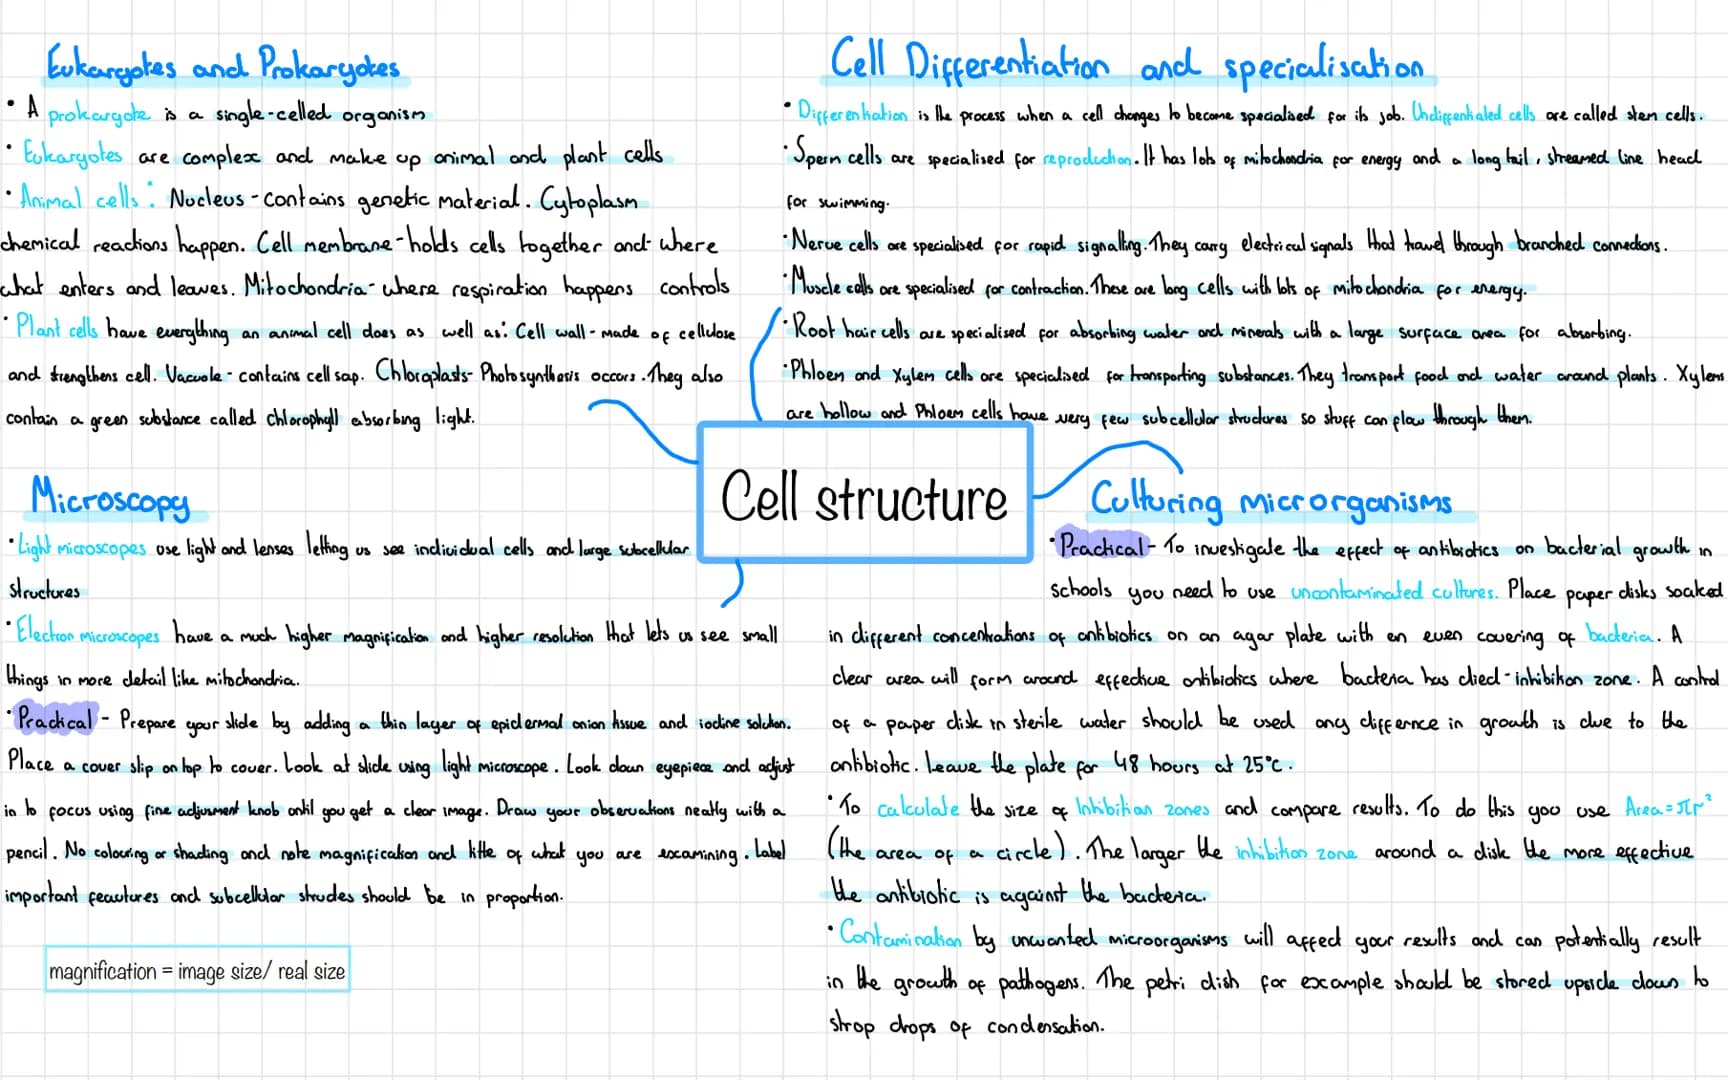 Eukaryotes and Prokaryotes
• A prokaryote is a single-celled organism
• Eukaryotes are complex and make up animal and plant cells
• Animal cells: Nucleus - contains genetic material. Cytoplasm
chemical reactions happen. Cell membrane - holds cells together and where
what enters and leaves. Mitochondria - where respiration happens controls
• Plant cells have everything an animal cell does as well as: Cell wall - made of cellulose
and strengthens cell. Vacuole - contains cell sap. Chloroplasts - Photosynthesis occurs. They also
contain a green substance called Chlorophyll absorbing light.
Cell Differentiation and specialisation
• Differentiation is the process when a cell changes to become specialised for its job. Undifferentiated cells are called stem cells.
• Sperm cells are specialised for reproduction. It has lots of mitochondria for energy and a long tail, streamed line head
for swimming.
• Nerve cells are specialised for rapid signalling. They carry electrical signals that travel through branched connections.
• Muscle cells are specialised for contraction. These are long cells with lots of mitochondria for energy.
• Root hair cells are specialised for absorbing water and minerals with a large surface area for absorbing.
• Phloem and Xylem cells are specialised for transporting substances. They transport food and water around plants. Xylem
are hollow and Phloem cells have very few subcellular structures so stuff can flow through them.
Cell structure
Microscopy
• Light microscopes use light and lenses letting us see individual cells and large subcellular
structures
• Electron microscopes have a much higher magnification and higher resolution that lets us see small
things in more detail like mitochondria.
• Practical - Prepare your slide by adding a thin layer of epidermal onion tissue and iodine solution.
Place a cover slip on top to cover. Look at slide using light microscope. Look down eyepiece and adjust
in to focus using fine adjusment knob until you get a clear image. Draw your observations neatly with a
pencil. No colouring or shading and note magnification and title of what you are examining. Label
important features and subcellular studes should be in proportion.
magnification = image size/ real size
Culturing microrganisms
• Practical - To investigate the effect of antibiotics on bacterial growth in
schools you need to use uncontaminated cultures. Place paper disks soaked
in different concentrations of antibiotics on an agar plate with an even covering of bacteria. A
clear area will form around effective antibiotics where bacteria has died - inhibition zone. A control
of a paper disk in sterile water should be used any differnce in growth is due to the
antibiotic. Leave the plate for 48 hours at 25°c.
• To calculate the size of Inhibition zones and compare results. To do this you use Area = πr²
(the area of a circle). The larger the inhibition zone around a disk the more effective
the antibiotic is against the bacteria.
• Contamination by unwanted microorganisms will affect your results and can potentially result
in the growth of pathogens. The petri dish for example should be stored upside down to
strop drops of condensation.